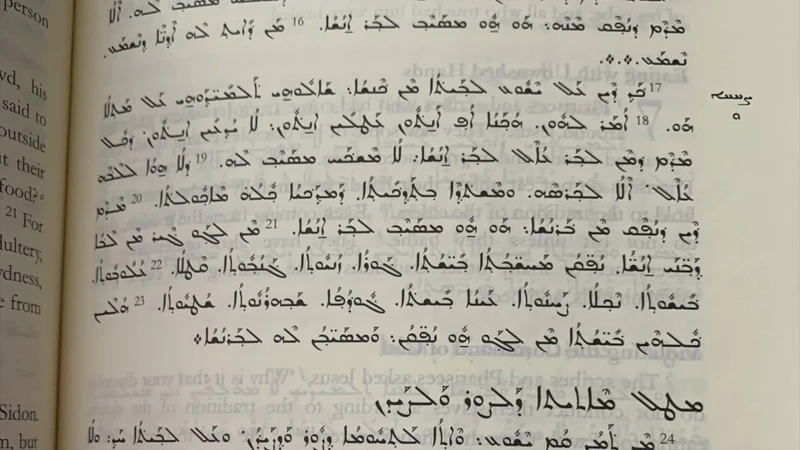 person
wd, his
said to
outside
ut their
food?ᵃ
21 For
dultery,
wdness,
e from
Sidon.
m, but
ܡܣܝܒ ܠܗ. ܐܠܐ
ܡܕܡ ܕܢܦܩ ܡܢܗ: ܗܘ ܗܘ ܡܣܝܒ ܠܒܪ ܐܢܫܐ. 16 ܡܢ ܕܐܝܬ ܠܗ ܐܕܢܐ ܕܢܫܡܥ
ܢܫܡܥ.
17 ܟܕ ܕܝܢ ܥܠ ܝܫܘܥ ܠܒܝܬܐ ܡܢ ܟܢܫܐ: ܫܐܠܘܗܝ ܬܠܡܝܕܘܗܝ ܥܠ ܡܬܠܐ
ܗܘ. 18 ܐܡܪ ܠܗܘܢ. ܗܟܢܐ ܐܦ ܐܢܬܘܢ ܥܛܠܝܢ ܐܢܬܘܢ. ܠܐ ܝܕܥܝܢ ܐܢܬܘܢ: ܕܟܠ
ܡܕܡ ܕܡܢ ܠܒܪ ܥܐܠ ܠܒܪ ܐܢܫܐ: ܠܐ ܡܫܟܚ ܡܣܝܒ ܠܗ. 19 ܕܠܐ ܗܘܐ ܠܠܒܗ
ܥܐܠ: ܐܠܐ ܠܟܪܣܗ. ܘܡܫܬܕܐ ܒܬܕܟܝܬܐ. ܕܡܕܟܝܐ ܟܠܗ ܡܐܟܘܠܬܐ. 20 ܡܕܡ
ܕܝܢ ܕܢܦܩ ܡܢ ܒܪܢܫܐ: ܗܘ ܗܘ ܡܣܝܒ ܠܒܪ ܐܢܫܐ. 21 ܡܢ ܠܓܘ ܓܝܪ ܡܢ ܠܒܐ
ܕܒܢܝ ܐܢܫܐ: ܢܦܩܢ ܡܚܫܒܬܐ ܒܝܫܬܐ. ܓܘܪܐ. ܙܢܝܘܬܐ. ܓܢܒܘܬܐ. ܩܛܠܐ. 22 ܥܠܘܒܘܬܐ.
ܒܝܫܘܬܐ. ܢܟܠܐ. ܨܚܢܘܬܐ. ܥܝܢܐ ܒܝܫܬܐ. ܓܘܕܦܐ. ܫܒܗܪܢܘܬܐ. ܫܛܝܘܬܐ. 23 ܗܠܝܢ
ܟܠܗܝܢ ܒܝܫܬܐ ܡܢ ܠܓܘ ܗܘ ܢܦܩܢ: ܘܡܣܝܒܢ ܠܗ ܠܒܪܢܫܐ܀
ܡܛܠ ܡܐܬܝܬܐ ܕܠܨܘܪ ܘܠܨܝܕܢ
24 ܡܢ ܬܡܢ ܩܡ ܝܫܘܥ: ܘܐܬܐ ܠܬܚܘܡܐ ܕܨܘܪ ܘܕܨܝܕܢ: ܘܥܠ ܠܒܝܬܐ ܚܕ: ܘܠܐ